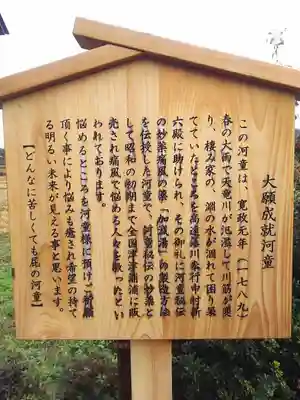 大願成就河童
この河童は、寛政元年（一七八九）
春の大雨で天竜川が氾濫して川筋が変
り、棲み家の、淵の水が涸れて困り果
てていたところを高遠藩川奉行中村新
六殿に助けられ、その御礼に河童秘伝
の妙薬痛風の薬「加減湯」の製造方法
を伝授した河童で、河童秘伝の妙薬と
して昭和の初期まで全国津々浦浦に販
売され痛風で悩める人々を救ったとい
われております。
悩めるところを河童様に預けご祈願
頂く事により悩みも癒され希望の持て
る明るい未来が見える事と思います。
【どんなに苦しくても屁の河童】